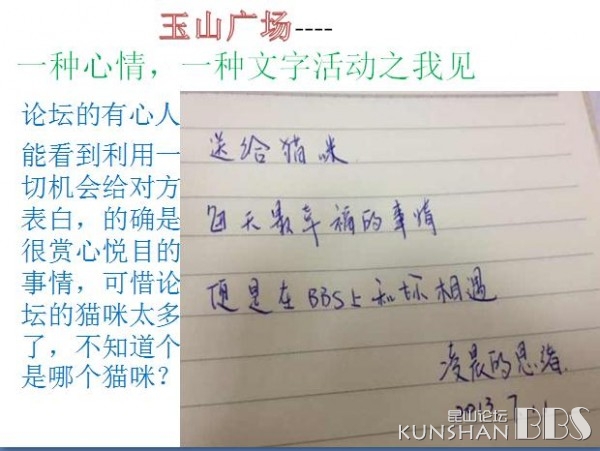 玉山广场----
一种心情，一种文字活动之我见
论坛的有心人
能看到利用一
切机会给对方
表白，的确是
很赏心悦目的
事情，可惜论
坛的猫咪太多
了，不知道个
是哪个猫咪？
送给猫咪
每天最幸福的事情
便是在BBS上和你相遇
凌晨的思绪
昆山论坛
KUNSHAN BBS